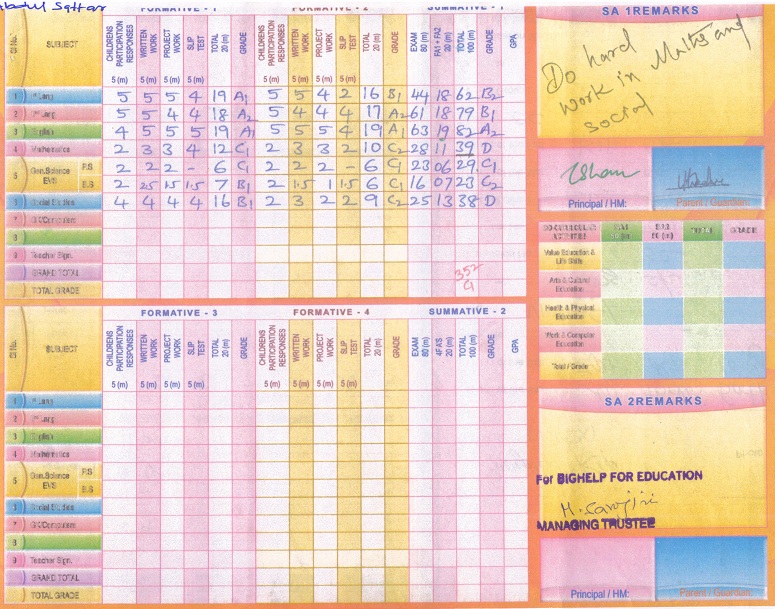 FORMATIVE - 1 FORMATIVE - 2 SUMMATIVE - 1
SUBJECT CHILDRENS PARTICIPATION RESPONSES WRITTEN WORK PROJECT WORK SLIP TEST TOTAL 20 (m) GRADE CHILDRENS PARTICIPATION RESPONSES WRITTEN WORK PROJECT WORK SLIP TEST TOTAL 20 (m) GRADE EXAM 80 (m) FA1 + FA2 20 (m) TOTAL 100 (m) GRADE GPA
5 (m) 5 (m) 5 (m) 5 (m) 5 (m) 5 (m) 5 (m) 5 (m)
1 Ist Lang 5 5 5 4 19 A1 5 5 4 2 16 B1 44 18 62 B2
2 Lang 5 5 4 4 18 A2 5 4 4 4 17 A2 61 18 79 B1
3 English 4 5 5 5 19 A1 5 5 5 4 19 A1 63 19 82 A2
4 Mathematics 2 3 3 4 12 C1 2 3 3 2 10 C2 28 11 39 D
5 Gen.Science EVS P.S 2 2 2 - 6 C1 2 2 2 - 6 C1 23 06 29 C1
B.S 2 2.5 1.5 1.5 7 B1 2 1.5 1 1.5 6 C1 16 07 23 C2
Social Studies 4 4 4 4 16 B1 2 3 2 2 9 C2 25 13 38 D
GK/Computers
8
9 Teacher Sign.
GRAND TOTAL 352
TOTAL GRADE C1
SA 1REMARKS
Do hard
work in Maths and
social
Principal / HM: Parent / Guardian:
CO-CURRICULAR ACTIVITIES TOTAL GRADE
Value Education & Life Skills
Arts & Cultural Education
Health & Physical Education
Work & Computer Education
Total / Grade
FORMATIVE - 3 FORMATIVE - 4 SUMMATIVE - 2
SUBJECT CHILDRENS PARTICIPATION RESPONSES WRITTEN WORK PROJECT WORK SLIP TEST TOTAL 20 (m) GRADE CHILDRENS PARTICIPATION RESPONSES WRITTEN WORK PROJECT WORK SLIP TEST TOTAL 20 (m) GRADE EXAM 80 (m) 4FA'S 20 (m) TOTAL 100 (m) GRADE GPA
5 (m) 5 (m) 5 (m) 5 (m) 5 (m) 5 (m) 5 (m) 5 (m)
1 Ist Lang
2 Lang
3 English
4 Mathematics
5 Gen.Science EVS P.S
B.S
Social Studies
GK/Computers
8
9 Teacher Sign.
GRAND TOTAL
TOTAL GRADE
SA 2REMARKS
For BIGHELP FOR EDUCATION
M. Sarojini
MANAGING TRUSTEE
Principal / HM: Parent / Guardian: